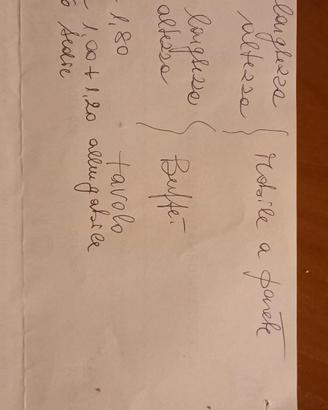 larghezza
altezza
Mobile a parete
larghezza
altezza
Buffet
1,80
tavolo
1,00 + 1,20 allungabile
sedie